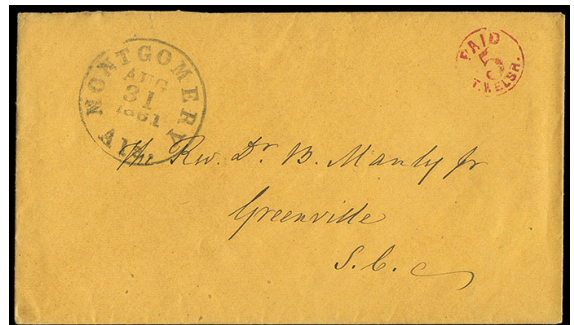 MONTGOMERY
AUG
31
1861
ALA.
PAID
5
T. WELSH.
The Rev. Dr. B. Manly Jr
Greenville
S. C.